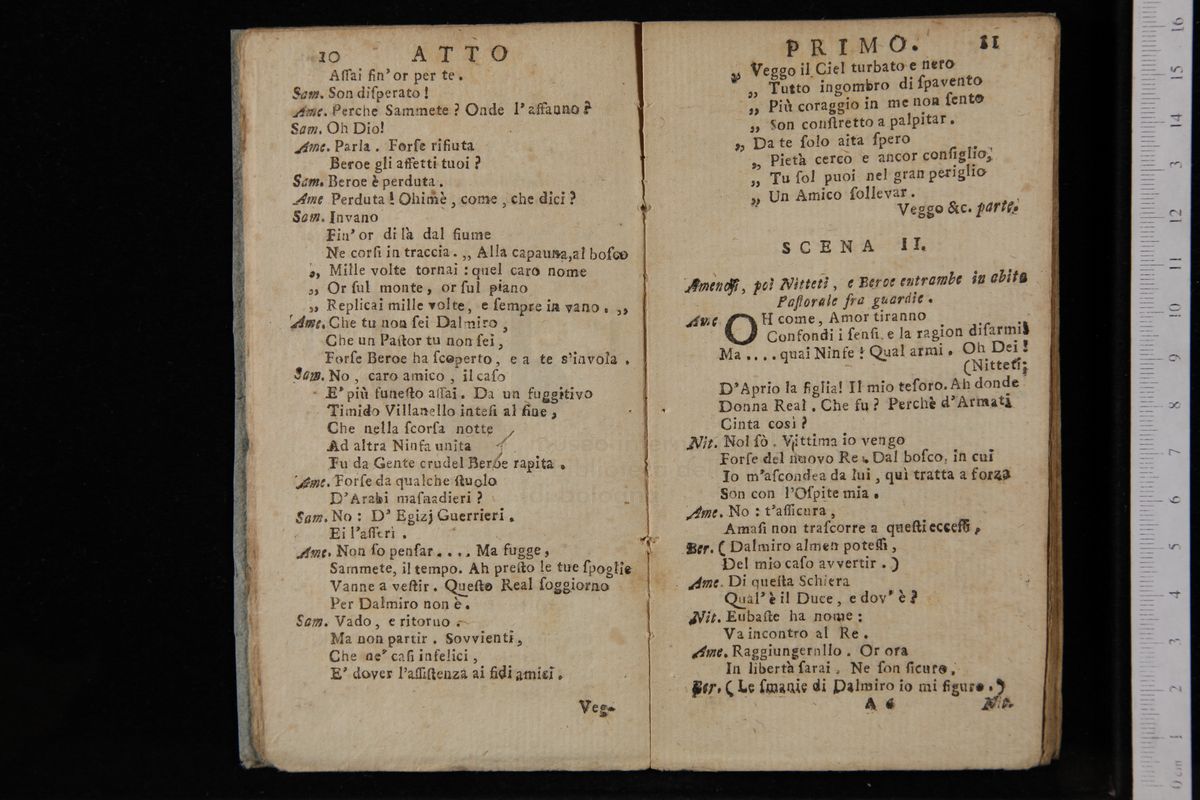 10 ATTO
Aſſai fin' or per te.
Sam. Son diſperato!
Ame. Perche Sammete? Onde l'affanno?
Sam. Oh Dio!
Ame. Parla. Forſe rifiuta
Beroe gli affetti tuoi?
Sam. Beroe è perduta.
Ame Perduta! Ohimè, come, che dici?
Sam. Invano
Fin' or di là dal fiume
Ne corſi in traccia. „ Alla capanna, al boſco
„ Mille volte tornai: quel caro nome
„ Or ſul monte, or ſul piano
„ Replicai mille volte, e ſempre in vano. „
Ame. Che tu non ſei Dalmiro,
Che un Paſtor tu non ſei,
Forſe Beroe ha ſcoperto, e a te s'invola.
Sam. No, caro amico, il caſo
E' più funeſto aſſai. Da un fuggitivo
Timido Villanello inteſi al fine,
Che nella ſcorſa notte
Ad altra Ninfa unita
Fu da Gente crudel Beroe rapita.
Ame. Forſe da qualche ſtuolo
D'Arabi maſnadieri?
Sam. No: D' Egizj Guerrieri.
Ei l'aſſerì.
Ame. Non ſo penſar.... Ma fugge,
Sammete, il tempo. Ah preſto le tue ſpoglie
Vanne a veſtir. Queſto Real ſoggiorno
Per Dalmiro non è.
Sam. Vado, e ritorno.
Ma non partir. Sovvienti,
Che ne' caſi infelici,
E' dover l'aſſiſtenza ai fidi amici.
Veg-
PRIMO. 11
„ Veggo il Ciel turbato e nero
„ Tutto ingombro di ſpavento
„ Più coraggio in me non ſento
„ Son conſtretto a palpitar.
„ Da te ſolo aita ſpero
„ Pietà cerco e ancor conſiglio,
„ Tu ſol puoi nel gran periglio
„ Un Amico ſollevar.
Veggo &c. parte.
SCENA II.
Amenoſi, poi Nitteti, e Beroe entrambe in abito
Paſtorale fra guardie.
Ame OH come, Amor tiranno
Confondi i ſenſi, e la ragion diſarmi!
Ma .... quai Ninfe! Qual armi. Oh Dei!
(Nitteti;
D'Aprio la figlia! Il mio teſoro. Ah donde
Donna Real. Che fu? Perchè d'Armati
Cinta così?
Nit. Nol sò. Vittima io vengo
Forſe del nuovo Re. Dal boſco, in cui
Io m'aſcondea da lui, quì tratta a forza
Son con l'Oſpite mia.
Ame. No: t'aſſicura,
Amaſi non traſcorre a queſti ecceſſi.
Ber. ( Dalmiro almen poteſſi,
Del mio caſo avvertir. )
Ame. Di queſta Schiera
Qual' è il Duce, e dov' è?
Nit. Eubaſte ha nome:
Va incontro al Re.
Ame. Raggiungerollo. Or ora
In libertà ſarai. Ne ſon ſicuro.
Ber. ( Le ſmanie di Dalmiro io mi figuro. )
A 6 Nit.